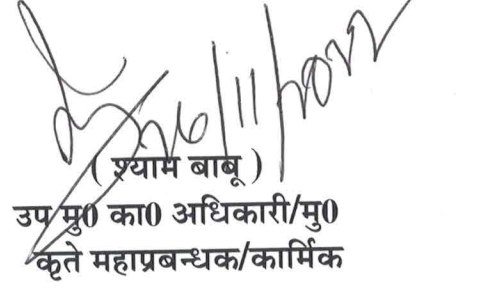 26/11/2022
( श्याम बाबू )
उप मु0 का0 अधिकारी/मु0
कृते महाप्रबन्धक/कार्मिक